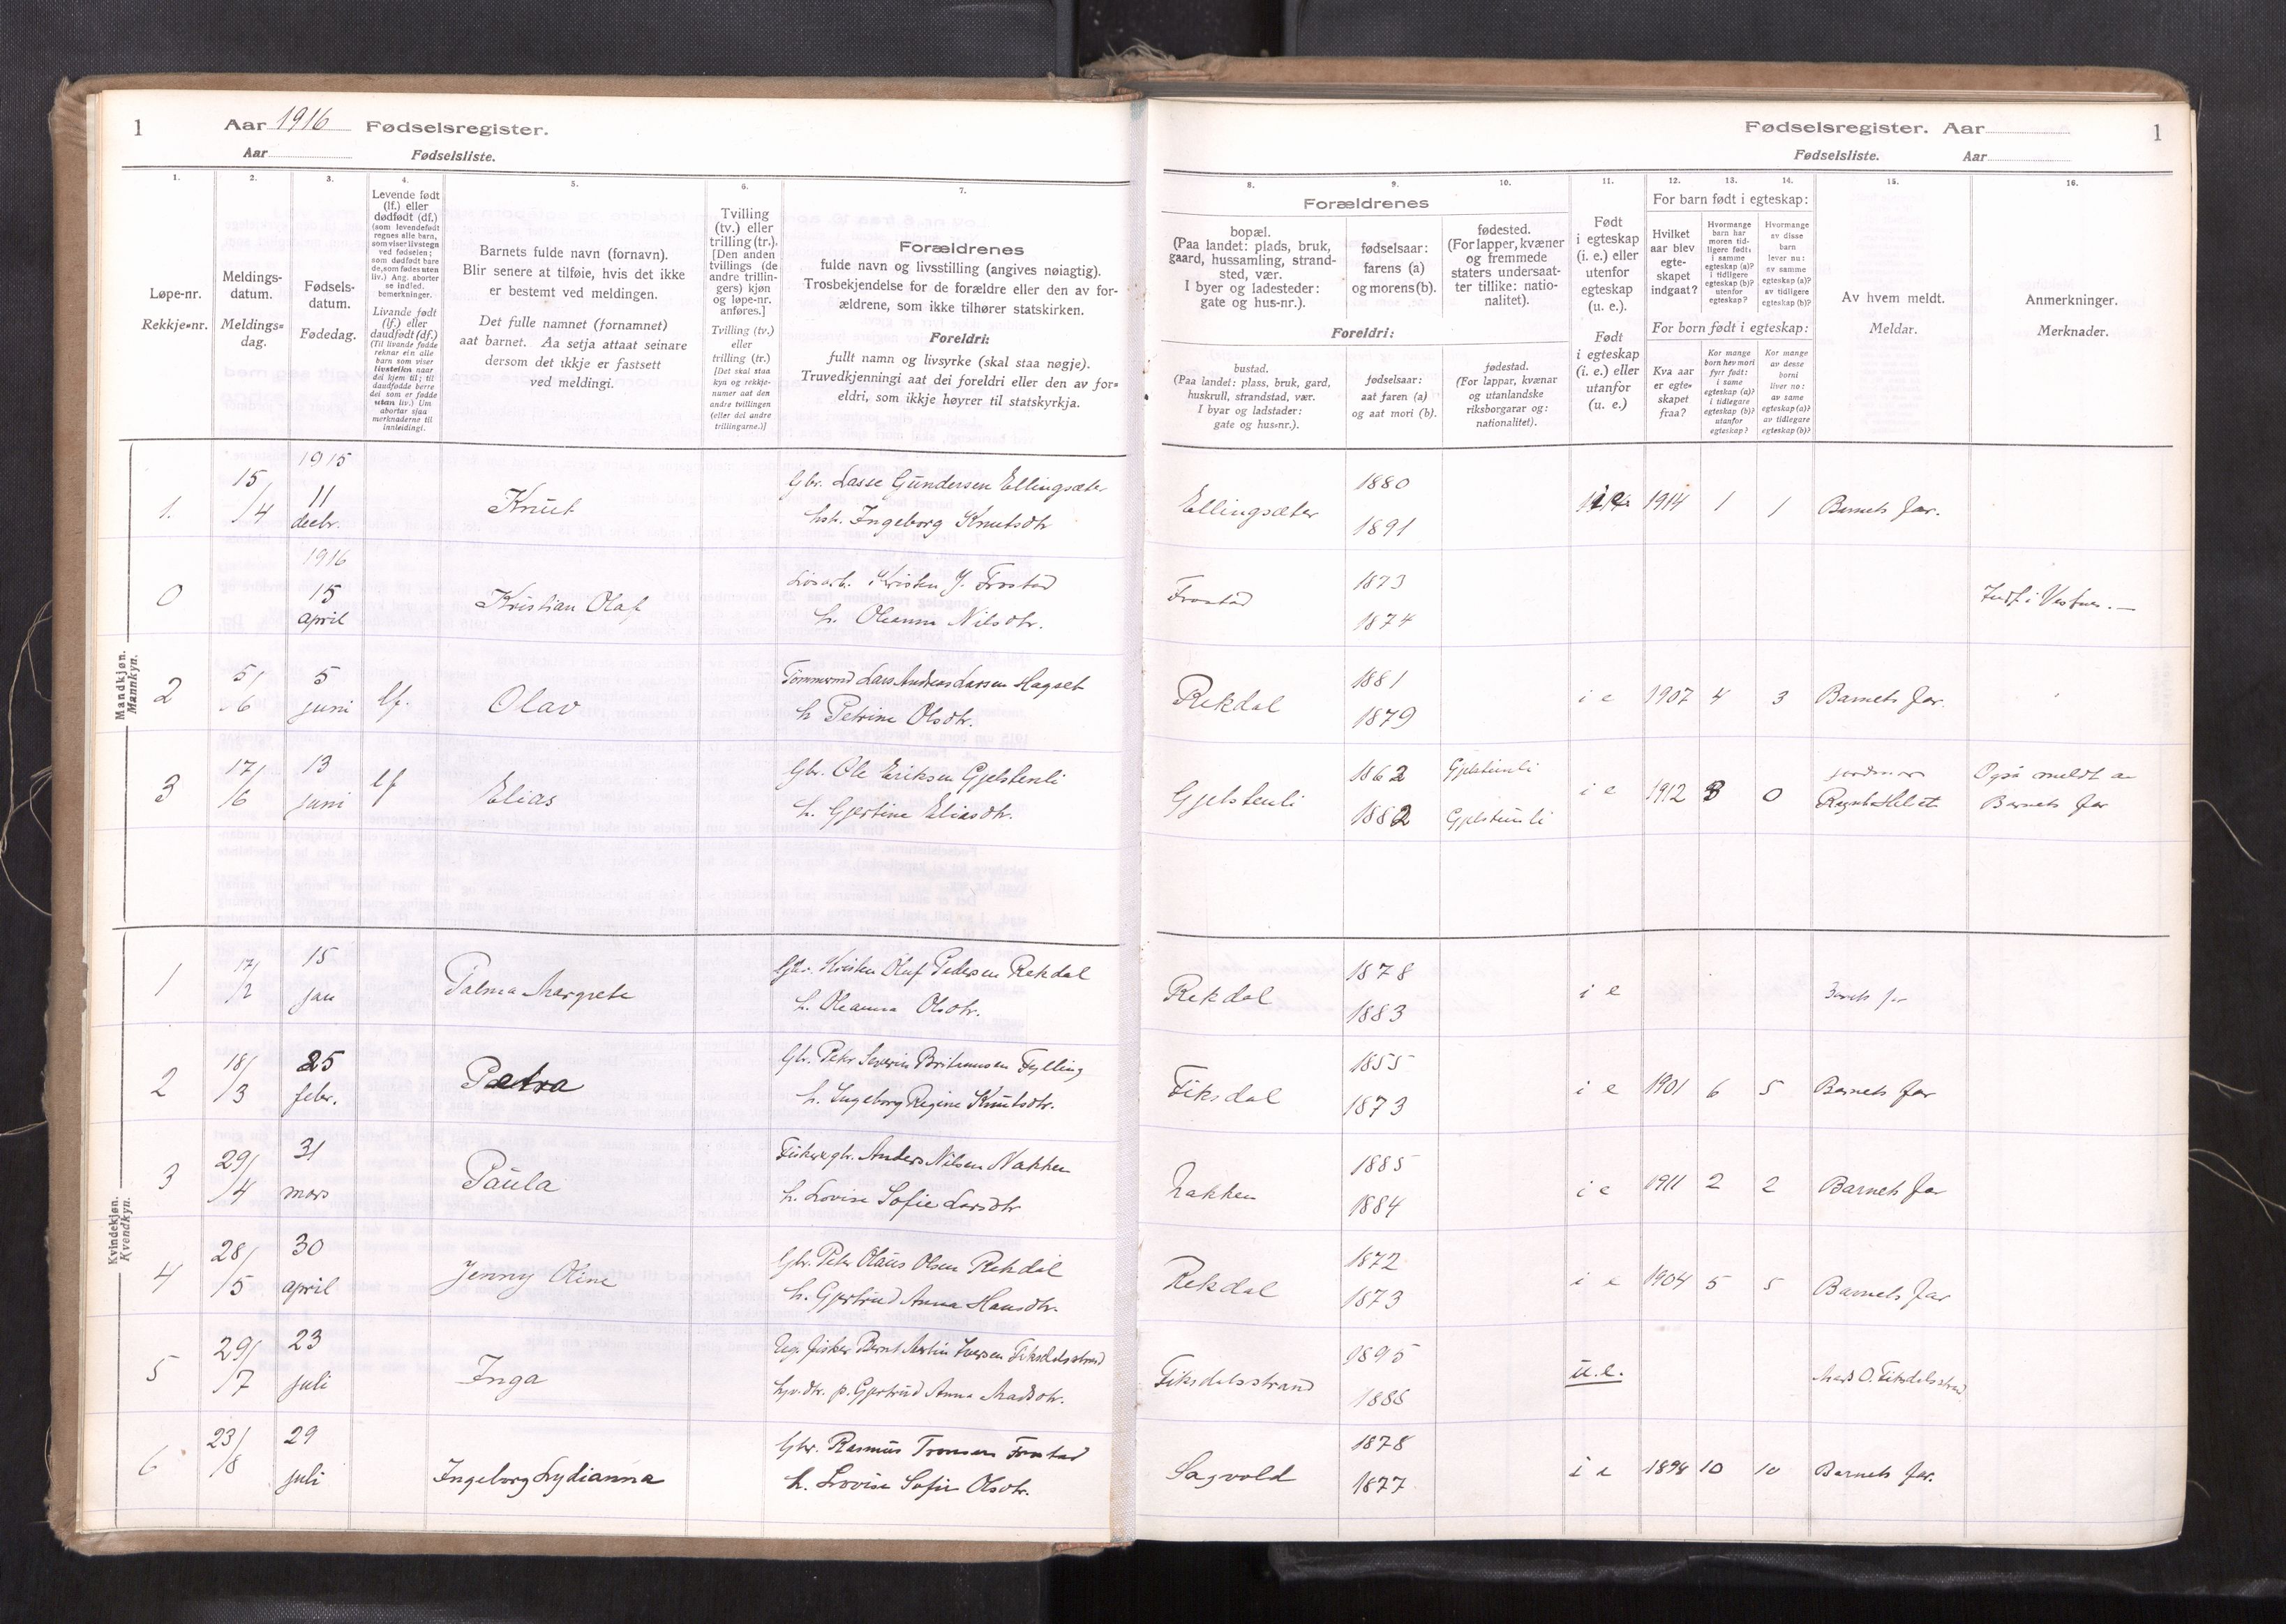 1
Aar 1916 Fødselsregister.
Aar Fødselsliste.
1.
2.
3.
4.
5.
6.
7.
Løpe-nr.
Rekkje-nr.
Meldings-
datum.
Meldings-
dag.
Fødsels-
datum.
Fødedag.
Levende født
(lf.) eller
dødfødt (df.)
(som levendefødt
regnes alle barn,
som viser livstegn
ved fødselen;
som dødfødt bare
de, som fødes uten
liv.) Ang. aborter
se indled.
bemerkninger.
Livande født
(lf.) eller
daudfødt (df.)
(Til livande fødde
reknar ein alle
barn som viser
livsteikn naar
dei kjem til; til
daudfødde berre
dei som er fødde
utan liv.) Um
abortar sjaa
merknaderne til
innleidingi.
Barnets fulde navn (fornavn).
Blir senere at tilføie, hvis det ikke
er bestemt ved meldingen.
Det fulle namnet (fornamnet)
aat barnet. Aa setja attaat seinare
dersom det ikkje er fastsett
ved meldingi.
Tvilling
(tv.) eller
trilling (tr.).
[Den anden
tvillings (de
andre trillin-
gers) kjøn
og løpe-nr.
anføres.]
Tvilling (tv.)
eller
trilling (tr.)
[Det skal staa
kyn og rekkje-
numer aat den
andre tvillingen
(eller dei andre
trillingarne.)]
Forældrenes
fulde navn og livsstilling (angives nøiagtig).
Trosbekjendelse for de forældre eller den av for-
ældrene, som ikke tilhører statskirken.
Foreldri:
fullt namn og livsyrke (skal staa nøgje).
Truvedkjenningi aat dei foreldri eller den av for-
eldri, som ikkje høyrer til statskyrkja.
Mandkjøn.
Mannkyn.
1.
15/4
1915
11
decbr.
Knut
Gbr. Lasse Gundersen Ellingsæter
hst. Ingeborg Knutsdtr
0
1916
15
april
Kristian Olaf
Løsarb. Kristen J. Frostad
h. Oleanna Nilsdtr.
2
5/6
5
juni
lf.
Olav
Tømmermd Lars Andreas Larsen Hagset
h Petrine Olsdtr.
3
17/6
13
juni
lf
Elias
Gbr. Ole Eriksen Gjelstenli
h. Gjertine Eliasdtr.
Kvindekjøn.
Kvendkyn.
1
17/2
15
jan
Palma Margrete
Gbr. Kristen Oluf Pedersen Rekdal
h. Oleanna Olsdtr.
2
18/3
25
febr.
Petra
Gbr. Peter Severin Fylling
h. Ingeborg Regine Knutsdtr.
3
29/4
31
mars
Paula
Fisker & gbr. Anders Nilsen Nakken
h. Lovise Sofie Larsdtr
4
28/5
30
april
Jenny Oline
Gbr. Peter Olaus Olsen Rekdal
h. Gjertrud Anna Hansdtr.
5
29/7
23
juli
Inga
Ug. fisker Bernt Martin Iversen Fiksdalsstrand
p. Gjertrud Anna Madsdtr.
6
23/8
29
juli
Ingeborg Lydianna
Gbr. Rasmus Tronsen Frostad
h. Lovise Sofie Olsdtr.
Fødselsregister. Aar
1
Fødselsliste. Aar
8.
9.
10.
11.
12.
13.
14.
15.
16.
Forældrenes
bopæl.
(Paa landet: plads, bruk,
gaard, hussamling, strand-
sted, vær.
I byer og ladesteder:
gate og hus-nr.).
fødselsaar:
farens (a)
og morens (b).
fødested.
(For lapper, kvæner
og fremmede
staters undersaat-
ter tillike: natio-
nalitet).
Foreldri:
bustad.
(Paa landet: plass, bruk, gard,
huskrull, strandstad, vær.
I byar og ladstader:
gate og hus-nr.).
fødselsaar:
aat faren (a)
og aat mori (b).
fødestad.
(For lappar, kvænar
og utanlandske
riksborgarar og:
nationalitet).
Født
i egteskap
(i. e.) eller
utenfor
egteskap
(u. e.).
Født
i egteskap
(i. e.) eller
utanfor
(u. e.)
For barn født i egteskap:
Hvilket
aar blev
egte-
skapet
indgaat?
Hvormange
barn har
moren tid-
ligere født:
i samme
egteskap (a)?
i tidligere
egteskap (b)?
utenfor
egteskap?
Hvormange
av disse
barn
lever nu:
av samme
egteskap (a)?
av tidligere
egteskap (b)?
For born født i egteskap:
Kva aar
er egte-
skapet
fraa?
Kor mange
born hev mori
fyrr født:
i same
egteskap (a)?
i tidlegare
egteskap (b)?
utanfor
egteskap?
Kor mange
av desse
borni
liver no:
av same
egteskap (a)?
av tidlegare
egteskap (b)?
Av hvem meldt.
Meldar.
Anmerkninger.
Merknader.
Ellingsæter
1880
1891
i e
1914
1
1
Barnets far.
Frostad
1873
1874
Indf. i Vestnes. —
Rekdal
1881
1879
i e
1907
4
3
Barnets far.
Gjelstenli
1862
1882
Gjelstenli
Gjelstenli
i e
1912
3
0
jordmor
Også meldt av
Barnets far
Rekdal
1878
1883
i e
Barnets far
Fiksdal
1855
1873
i e
1901
6
5
Barnets far
Nakken
1885
1884
i e
1911
2
2
Barnets far
Rekdal
1872
1873
i e
1904
5
5
Barnets far
Fiksdalsstrand
1895
1888
u. e.
Mads O. Fiksdalsstrand
Sagvold
1878
1877
i e
1898
10
10
Barnets far.